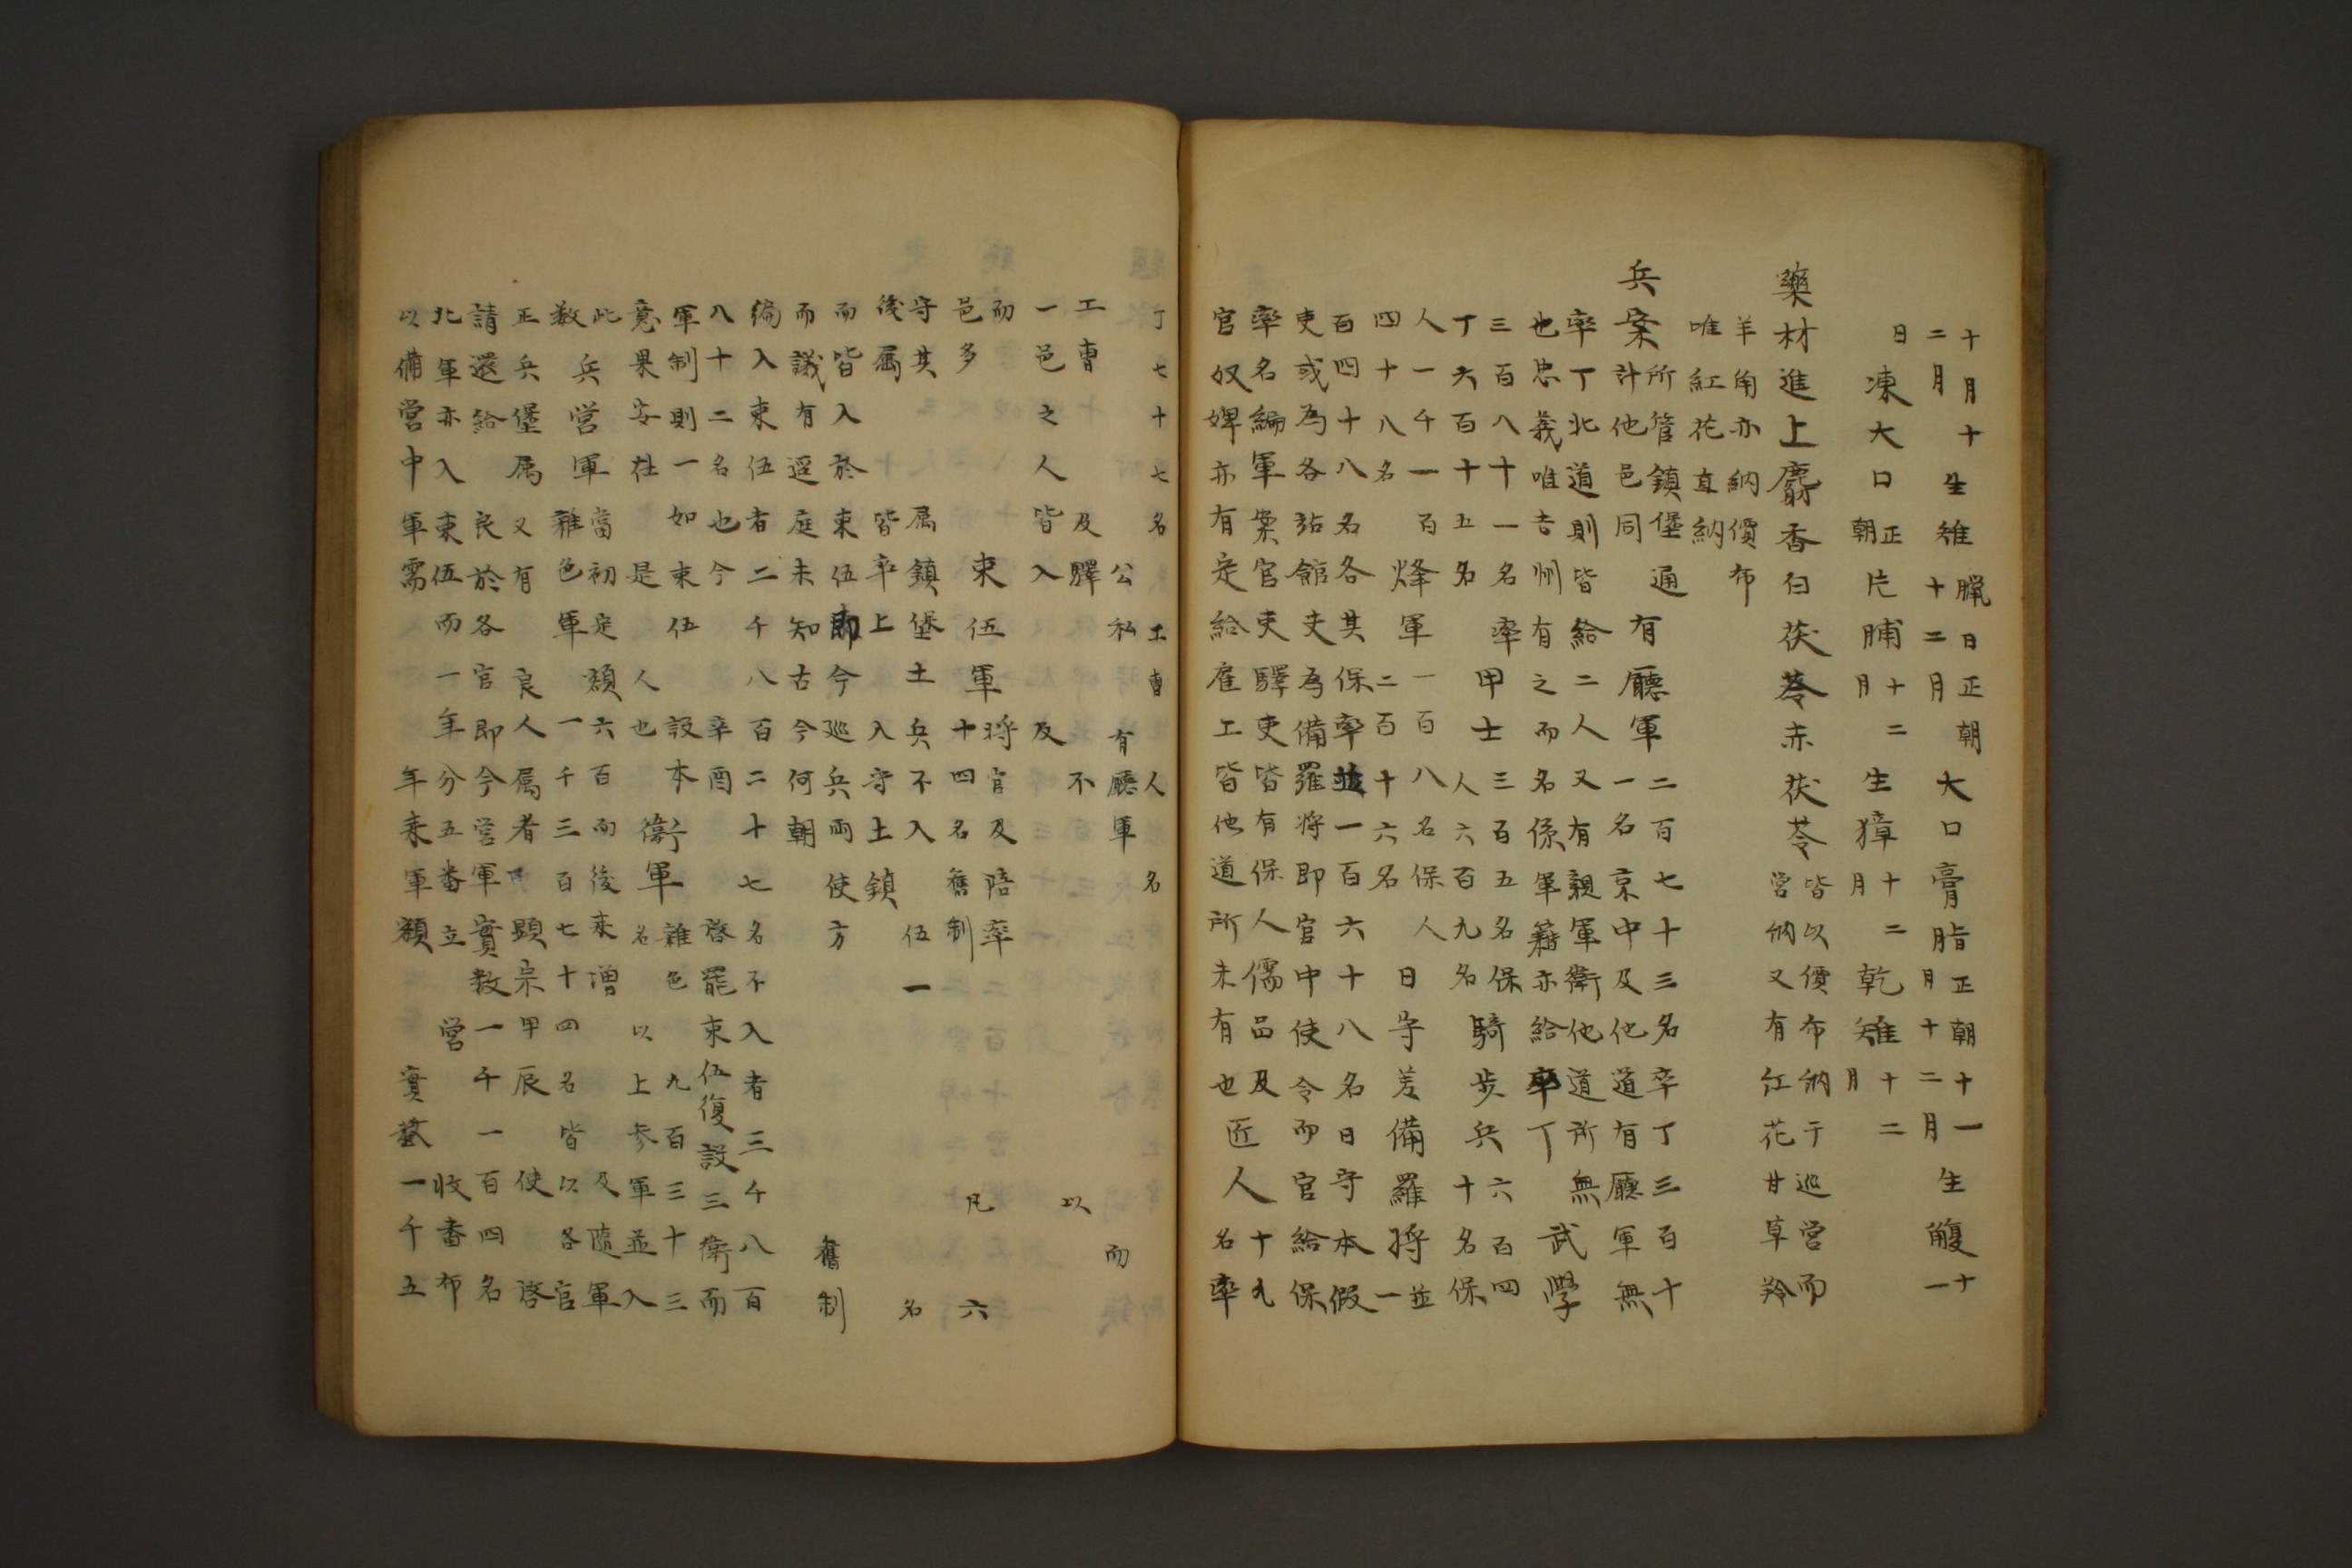 十月十
二月
生雉
臘日正朝
十二月
大口膏脂
正朝十一
月十二月
生鰒
十
一
日
凍大口
正
朝
片脯
十二
月
生獐
十二
月
乾雉
十二
月
藥材進上麝香白茯苓赤茯苓
皆以價布納于巡营而
营納又有紅花甘草羚
羊角亦納價布
唯紅花直納
兵案
所管鎮堡通
計他邑同
有廳軍
二百七十三名卒丁三百十
一名京中及他道有廳軍無
率丁北道則皆給二人又有親軍衛他道所無
也忠義唯吉州有之而名係軍籍亦給率丁
武學
三百八十一名率
丁六百十五名
甲士
三百五名保
人六百九名
騎步兵
六百四
十名保
人一千一百
四十八名
烽軍
一百八名保人
二百十六名
日守差備羅將
並
一
百四十八名各其保率並一百六十八名日守本假
吏或為各站館吏為備羅將即官中使令而官給保
率名編軍案官吏驛吏皆有保人儒品及
官奴婢亦有定給雇工皆他道所未有也
匠人
十九
名率
丁七十七名工曹人名
公私有廳軍而
工曹及驛不以
一邑之人皆入及
而束伍軍
將官及陪率凡六
邑多十四名舊制
守其屬鎮堡土兵不入伍一名
後屬皆卒上入守土鎮
而皆入於束伍即今巡兵兩使方舊制
而議有逕庭未知古今何朝
編入束伍者二千八百二十七名不入者三千八百
八十二名也今辛酉啓罷束伍復設三衛而
軍制則一如束伍設本衛軍
雜色九百三十三
意果安在是人也名以上参軍並入
此兵营軍
當初定額六百而後来增及隨軍
数雜色軍一千三百七十四名皆以各官
正兵堡属又有良人属者顯宗甲辰使啓
請還給良於各官即今营軍實数一千一百四名
北軍亦入束伍而一年分五番立营收番布
以備营中軍需年来軍額實数一千五